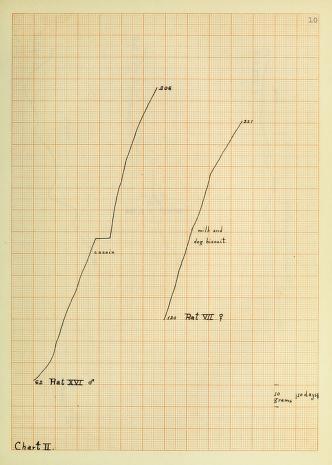 10
206
221
milk and
dog biscuit
casein
120 Rat VII ♀
62 Rat XVI ♂
10
grams
10 days
Chart II.